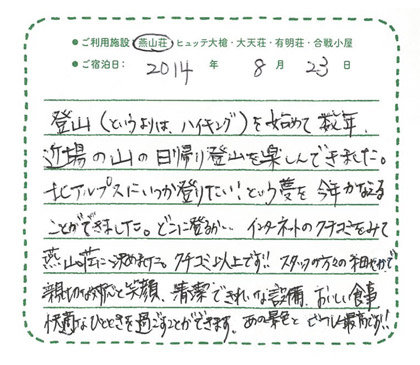 ●ご利用施設 燕山荘 ヒュッテ大槍・大天荘・有明荘・合戦小屋
●ご宿泊日： 2014 年 8 月 23 日
登山（というよりは、ハイキング）を始めて数年、
近場の山の日帰り登山を楽しんできました。
北アルプスにいつか登りたい！という夢を今年かなえる
ことができました。どこに登るか… インターネットのクチコミをみて
燕山荘に決めました。クチコミ以上です!! スタッフの方々の和やかで
親切な対応と笑顔、清潔できれいな設備、おいしい食事
快適なひとときを過ごすことができます。あの景色とビール最高です!!